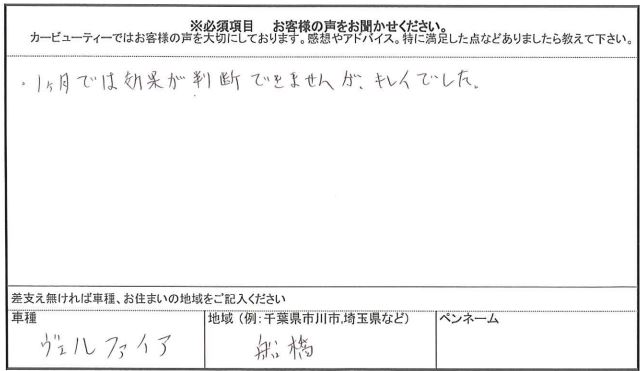 ※必須項目　お客様の声をお聞かせください。
カービューティーではお客様の声を大切にしております。感想やアドバイス。特に満足した点などありましたら教えて下さい。
・1ヶ月では効果が判断できませんが、キレイでした。
差支え無ければ車種、お住まいの地域をご記入ください
車種
地域（例：千葉県市川市,埼玉県など）
ペンネーム
ヴェルファイア
船橋